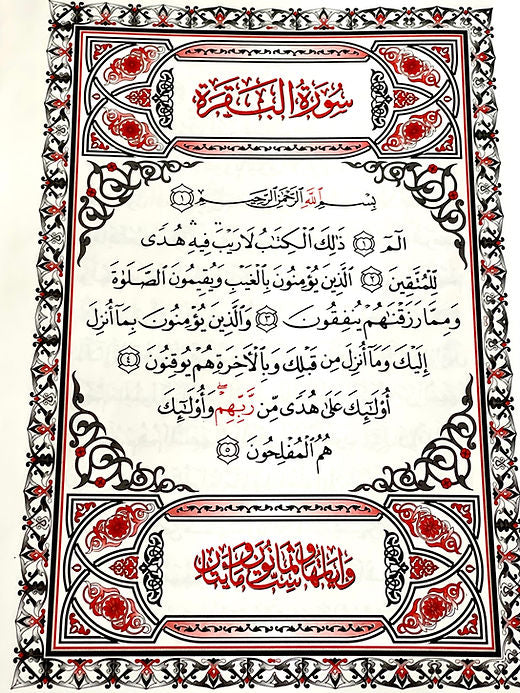 سُورَةُ الْبَقَرَةِ
بِسْمِ اللَّهِ الرَّحْمَٰنِ الرَّحِيمِ ١
الٓمٓ ١ ذَٰلِكَ الْكِتَٰبُ لَا رَيْبَ فِيهِ هُدًى
لِّلْمُتَّقِينَ ٢ الَّذِينَ يُؤْمِنُونَ بِالْغَيْبِ وَيُقِيمُونَ الصَّلَوٰةَ
وَمِمَّا رَزَقْنَٰهُمْ يُنفِقُونَ ٣ وَالَّذِينَ يُؤْمِنُونَ بِمَآ أُنزِلَ
إِلَيْكَ وَمَآ أُنزِلَ مِن قَبْلِكَ وَبِالْأَخِرَةِ هُمْ يُوقِنُونَ ٤
أُوْلَٰٓئِكَ عَلَىٰ هُدًى مِّن رَّبِّهِمْ ۖ وَأُوْلَٰٓئِكَ
هُمُ الْمُفْلِحُونَ ٥
وَآيَاتُهَا سِتٌّ وَثَمَانُونَ وَمِائَتَانِ